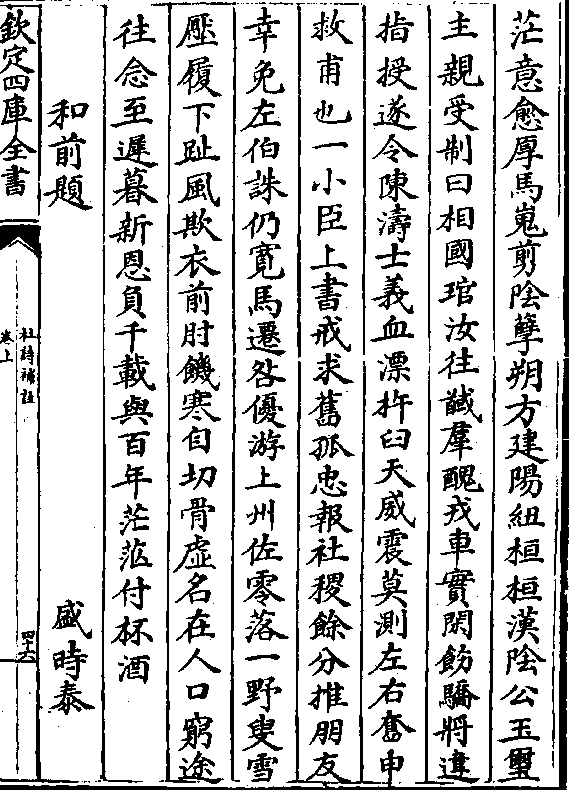 茫意愈厚馬嵬剪陰孽朔方建陽紐桓桓漢陰公玉璽
主親受制曰相國琯汝往馘羣醜戎車實閑飭驕將違
指授遂令陳濤士義血漂杵臼天威震莫測左右奮申
救甫也一小臣上書戒求舊孤忠報社稷餘分推朋友
幸免左伯誅仍寛馬遷咎優游上州佐零落一野叟雪
壓履下趾風欺衣前肘饑寒自切骨虛名在人口窮途
往念至遲暮新恩負千載與百年茫茫付杯酒
和前題 盛時泰
欽定四庫全書
杜詩補註
卷上
四十六